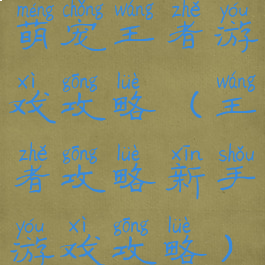 méng chǒng wáng zhě yóu
萌宠王者游
xì gōng luè wáng
戏攻略（王
zhě gōng luè xīn shǒu
者攻略新手
yóu xì gōng luè
游戏攻略）